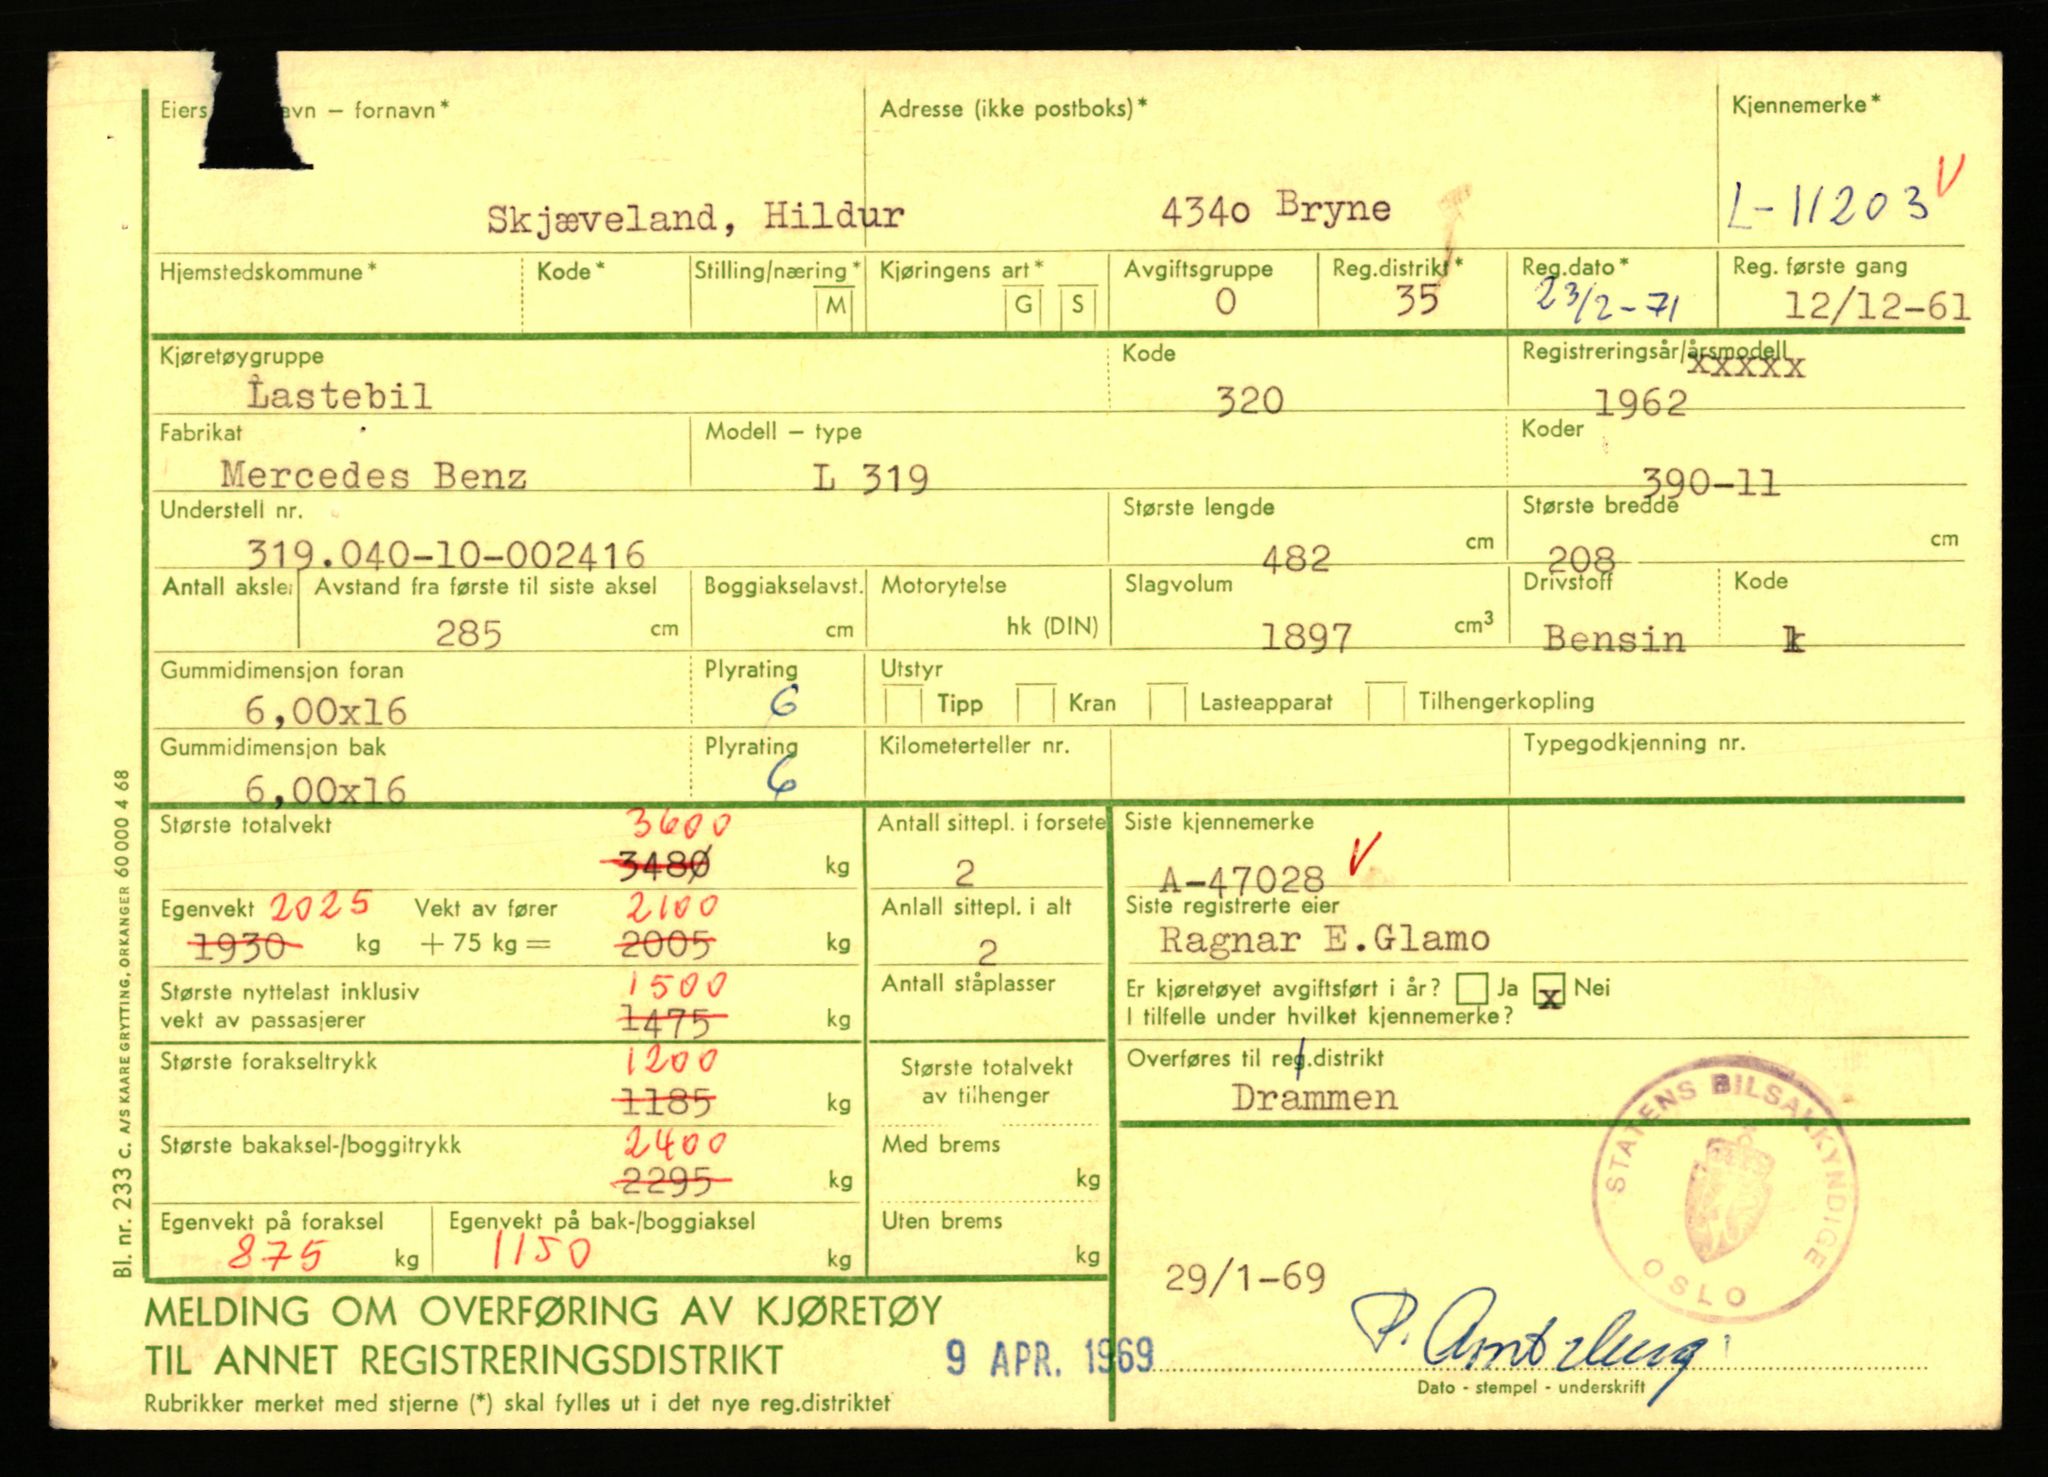 Eiers avn – fornavn*
Adresse (ikke postboks)*
Kjennemerke*
Skjæveland, Hildur
4340 Bryne
L-11203 V
Hjemstedskommune*
Kode*
Stilling/næring*
M
Kjøringens art*
G
S
Avgiftsgruppe
0
Reg.distrikt*
35
Reg.dato*
23/2-71
Reg. første gang
12/12-61
Kjøretøygruppe
Lastebil
Kode
320
Registreringsår/årsmodell
xxxxx
1962
Fabrikat
Mercedes Benz
Modell – type
L 319
Koder
390-11
Understell nr.
319.040-10-002416
Største lengde
482 cm
Største bredde
208 cm
Antall aksler
Avstand fra første til siste aksel
285 cm
Boggiakselavst.
cm
Motorytelse
hk (DIN)
Slagvolum
1897 cm3
Drivstoff
Bensin
Kode
Gummidimensjon foran
6,00x16
Plyrating
6
Utstyr
Tipp
Kran
Lasteapparat
Tilhengerkopling
Gummidimensjon bak
6,00x16
Plyrating
6
Kilometerteller nr.
Typegodkjenning nr.
Største totalvekt
3600
3480 kg
Egenvekt 2025
1930 kg
Vekt av fører 2100
+ 75 kg = 2005 kg
Største nyttelast inklusiv
vekt av passasjerer
1500
1475 kg
Største forakseltrykk
1200
1185 kg
Største bakaksel-/boggitrykk
2400
2295 kg
Egenvekt på foraksel
875 kg
Egenvekt på bak-/boggiaksel
1150 kg
Antall sittepl. i forsete
2
Anlall sittepl. i alt
2
Antall ståplasser
Største totalvekt
av tilhenger
Med brems
kg
Uten brems
kg
Siste kjennemerke
A-47028 V
Siste registrerte eier
Ragnar E.Glamo
Er kjøretøyet avgiftsført i år? Ja x Nei
I tilfelle under hvilket kjennemerke?
Overføres til reg.distrikt
Drammen
STATENS BILSAKKYNDIGE
OSLO
29/1-69
Dato - stempel - underskrift
MELDING OM OVERFØRING AV KJØRETØY
TIL ANNET REGISTRERINGSDISTRIKT
9 APR. 1969
Rubrikker merket med stjerne (*) skal fylles ut i det nye reg.distriktet
Bl. nr. 233 c. A/S KAARE GRYTTING, ORKANGER 60 000 4 68